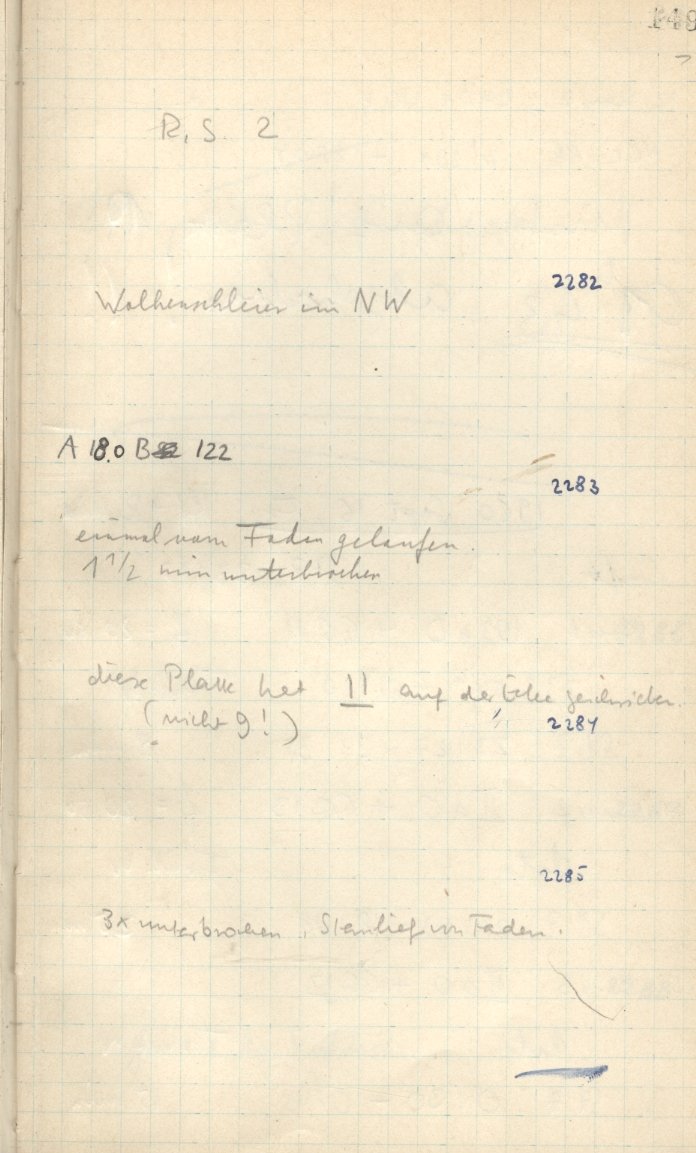 149
R. S. 2
2282
Wolkenschleier im NW
A 18.0 B 122
2283
einmal vom Faden gelaufen.
1 1/2 min unterbrochen
diese Platte hat 11 auf der Ecke geschrieben.
(nicht 9!)
2284
2285
3x unterbrochen, Stern lief vom Faden.